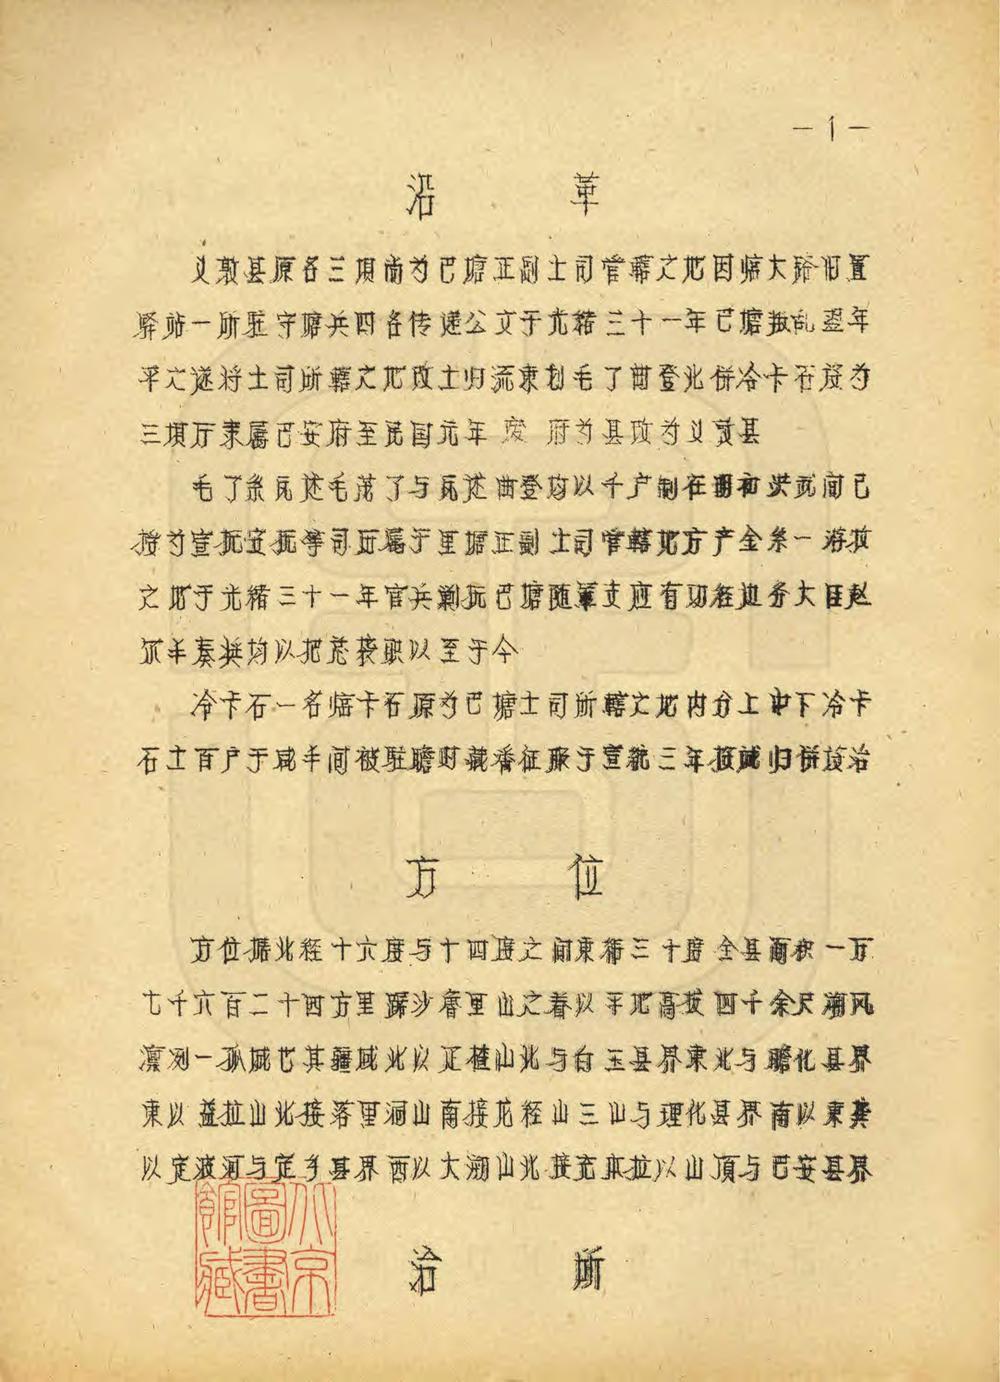 —1—
沿 革
义敦县原名三坝尚为巴塘正副土司管辖之地因临大路旧置
驿站一所驻守塘兵四名传递公文于光绪三十一年巴塘叛乱翌年
平之遂将土司所辖之地改土归流东划毛了曲登北併冷卡石设为
三坝厅隶属巴安府至民国元年废府为县改为义敦县
毛了条瓦述毛茂了与瓦述曲登均以千户制在明初洪武间已
授为宣抚宣抚等司历属于里塘正副土司管辖地方产金条一游牧
之地于光绪三十一年官兵剿抚巴塘随军支应有功经边务大臣赵
尔丰奏奖均以把总授职以至于今
冷卡石一名临卡石原为巴塘土司所辖之地内分上中下冷卡
石土百户于咸丰间被驻瞻时藏番征服于宣统三年投诚归併设治
方 位
方位据北经十六度与十四度之间东纬三十度全县面积一万
七千六百二十四方里踞沙鲁里山之脊以平地高拔四千余尺潮风
凛冽一孤城也其疆域北以疋楂山北与白玉县界东北与瞻化县界
东以益拉山北接落里洞山南接龙经山三山与理化县界南以东龚
以定波河与定乡县界西以大溯山北接充本拉以山顶与巴安县界
治 所
北京
圖書
館藏